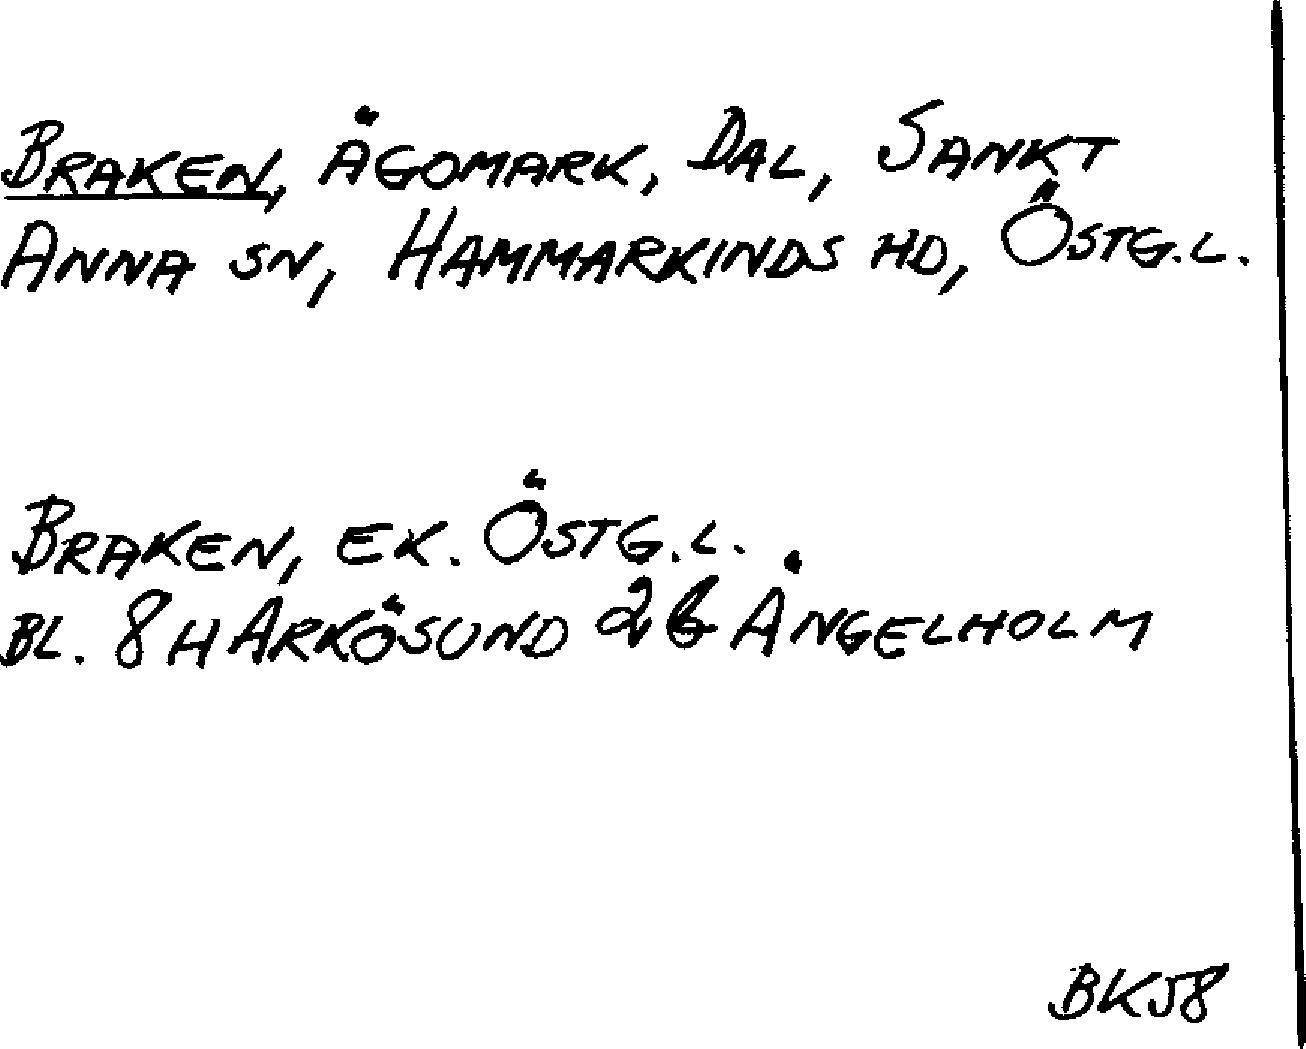 BRAKEN, ÄGOMARK, DAL, SANKT
ANNA SN, HAMMARKINDS HD, ÖSTG.L.
BRAKEN, EK. ÖSTG.L.
BL. 8H ARKÖSUND 2b ÅNGELHOLM
BK58